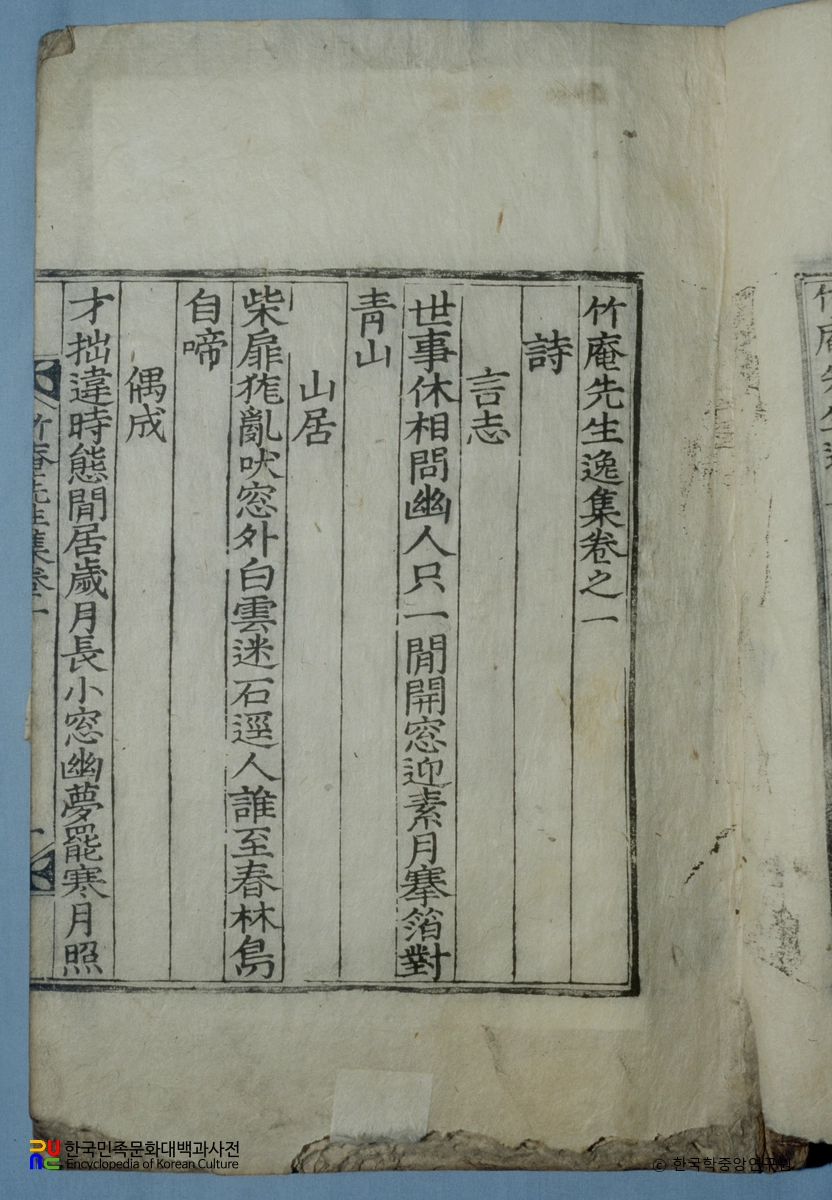 竹庵先生逸集卷之一
詩
言志
世事休相問幽人只一閒開窓迎素月搴箔對
青山
山居
柴扉尨亂吠窓外白雲迷石逕人誰至春林鳥
自啼
偶成
才拙違時態閒居歲月長小窓幽夢罷寒月照
竹庵先生集卷一
한국민족문화대백과사전
Encyclopedia of Korean Culture
© 한국학중앙연구원